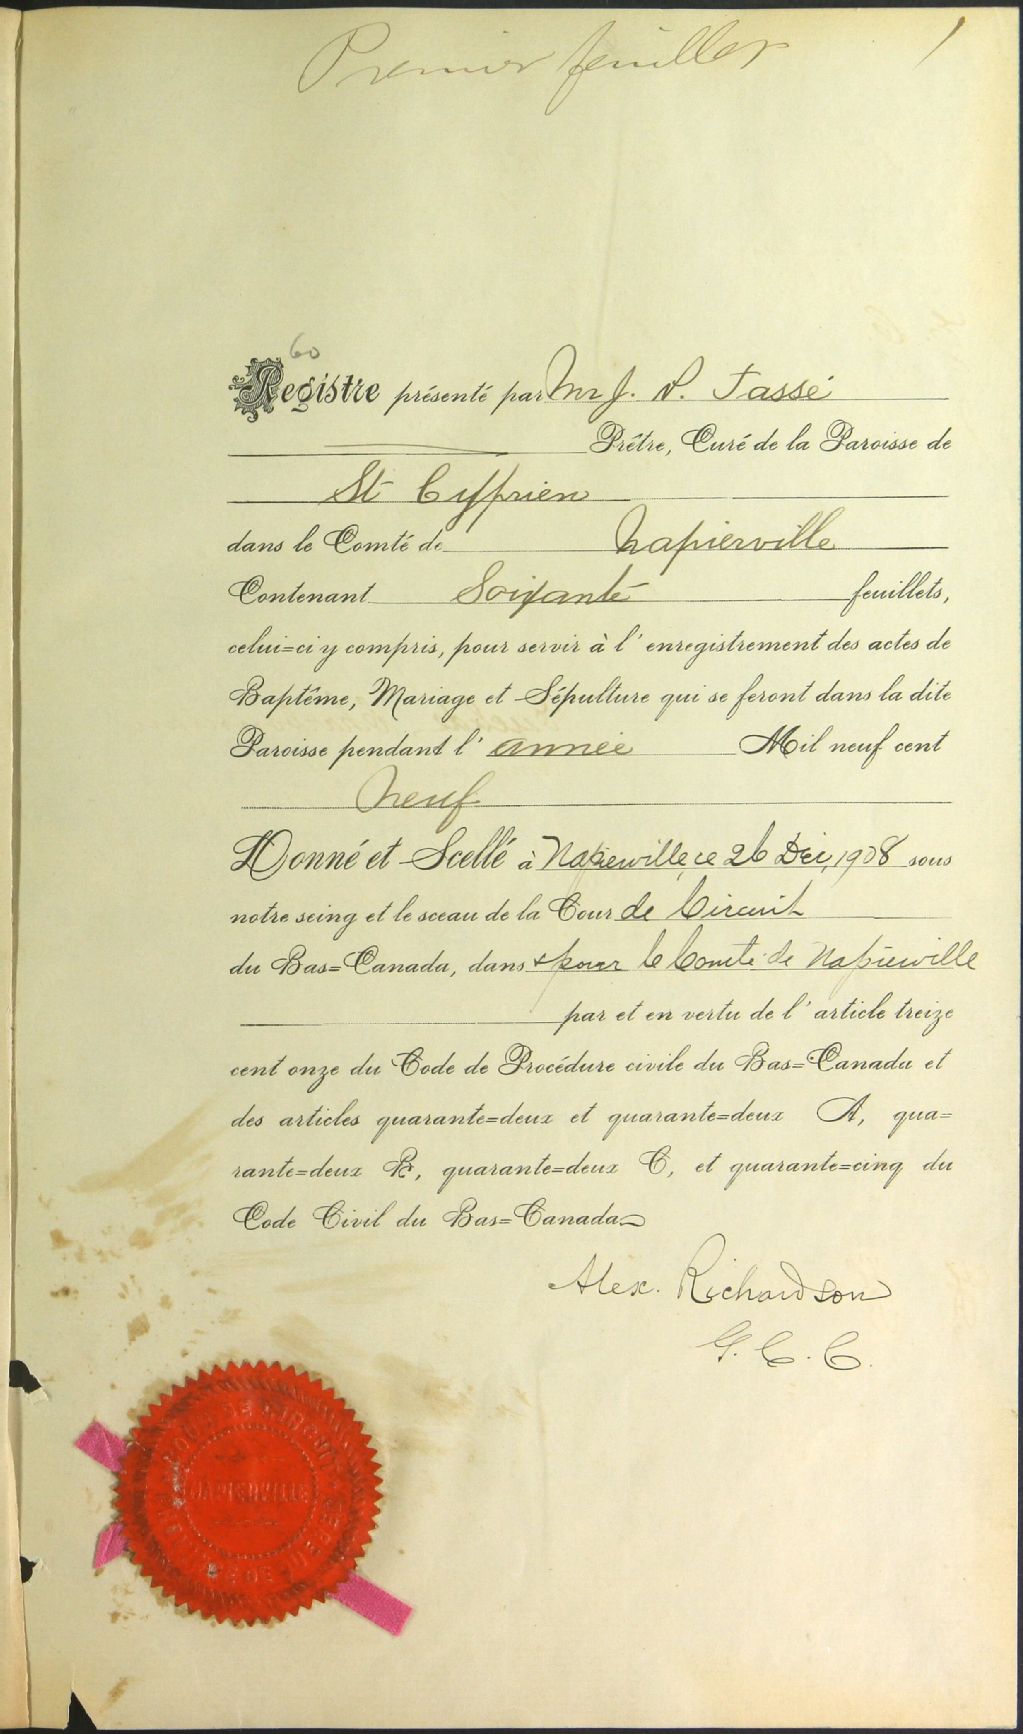 Premier feuillet 1
60
Registre présenté par Mr J. N. Tassé
Prêtre, Curé de la Paroisse de
St Cyprien
dans le Comté de Napierville
Contenant Soixante feuillets,
celui=ci y compris, pour servir à l'enregistrement des actes de
Baptême, Mariage et Sépulture qui se feront dans la dite
Paroisse pendant l'année Mil neuf cent
neuf
Donné et Scellé à Napierville, ce 26 Déc, 1908 sous
notre seing et le sceau de la Cour de Circuit
du Bas=Canada, dans & pour le Comté de Napierville
par et en vertu de l'article treize
cent onze du Code de Procédure civile du Bas=Canada et
des articles quarante=deux et quarante=deux A, qua=
rante=deux B, quarante=deux C, et quarante=cinq du
Code Civil du Bas=Canada
Alex. Richardson
G. C. C.
COUR DE CIRCUIT
NAPIERVILLE